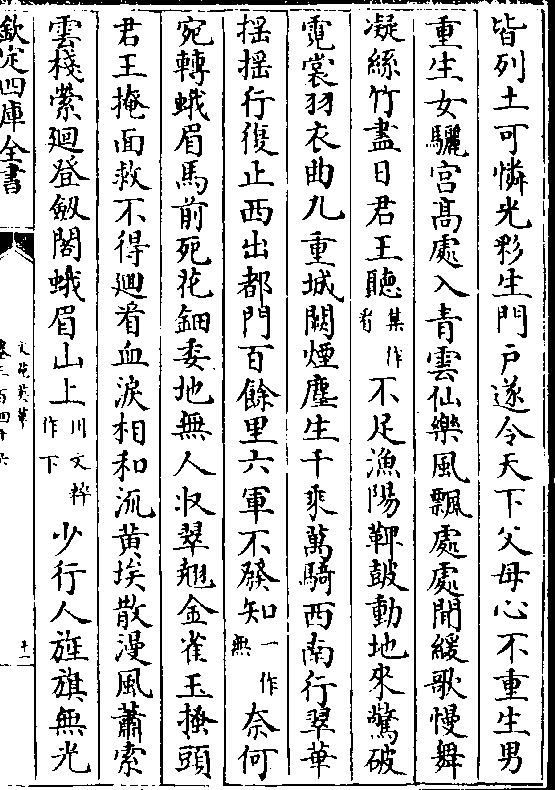 皆列土可憐光彩生門户遂令天下父母心不重生男
重生女驪宫髙處入青雲仙樂風飄處處聞緩歌慢舞
凝絲竹盡日君王聽集作看不足漁陽鞞鼓動地來驚破
霓裳羽衣曲九重城闕煙塵生千乘萬騎西南行翠華
揺揺行復止西出都門百餘里六軍不發知一作無奈何
宛轉蛾眉馬前死花鈿委地無人收翠翹金雀玉搔頭
君王掩面救不得廻看血淚相和流黄埃散漫風蕭索
雲棧縈廻登劔閣蛾眉山上川文粹作下少行人旌旗無光
欽定四庫全書
文苑英華
卷三百四十六
十一